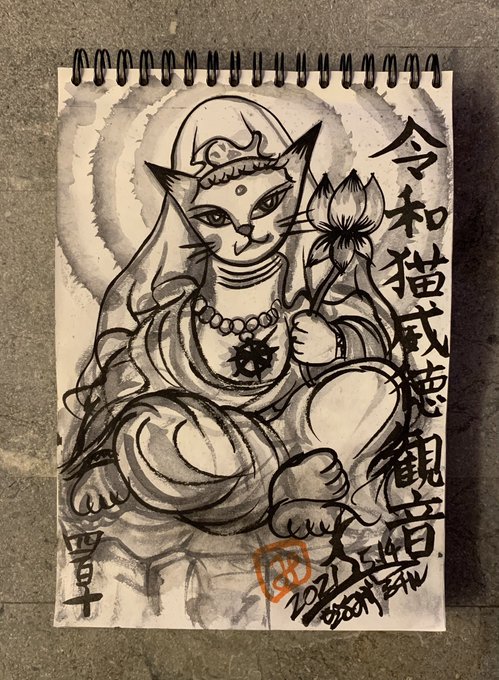 令和猫威徳観音
四百十
2021.5.14